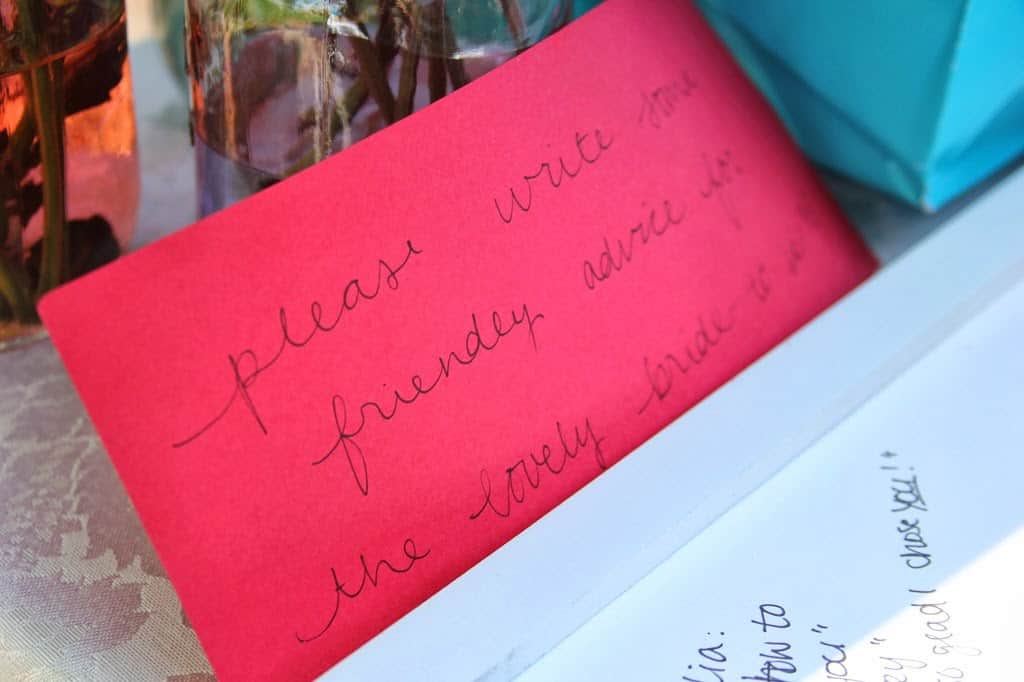 please write some
friendey advice for
the lovely bride-to
how to
you"
so glad I chose you!"